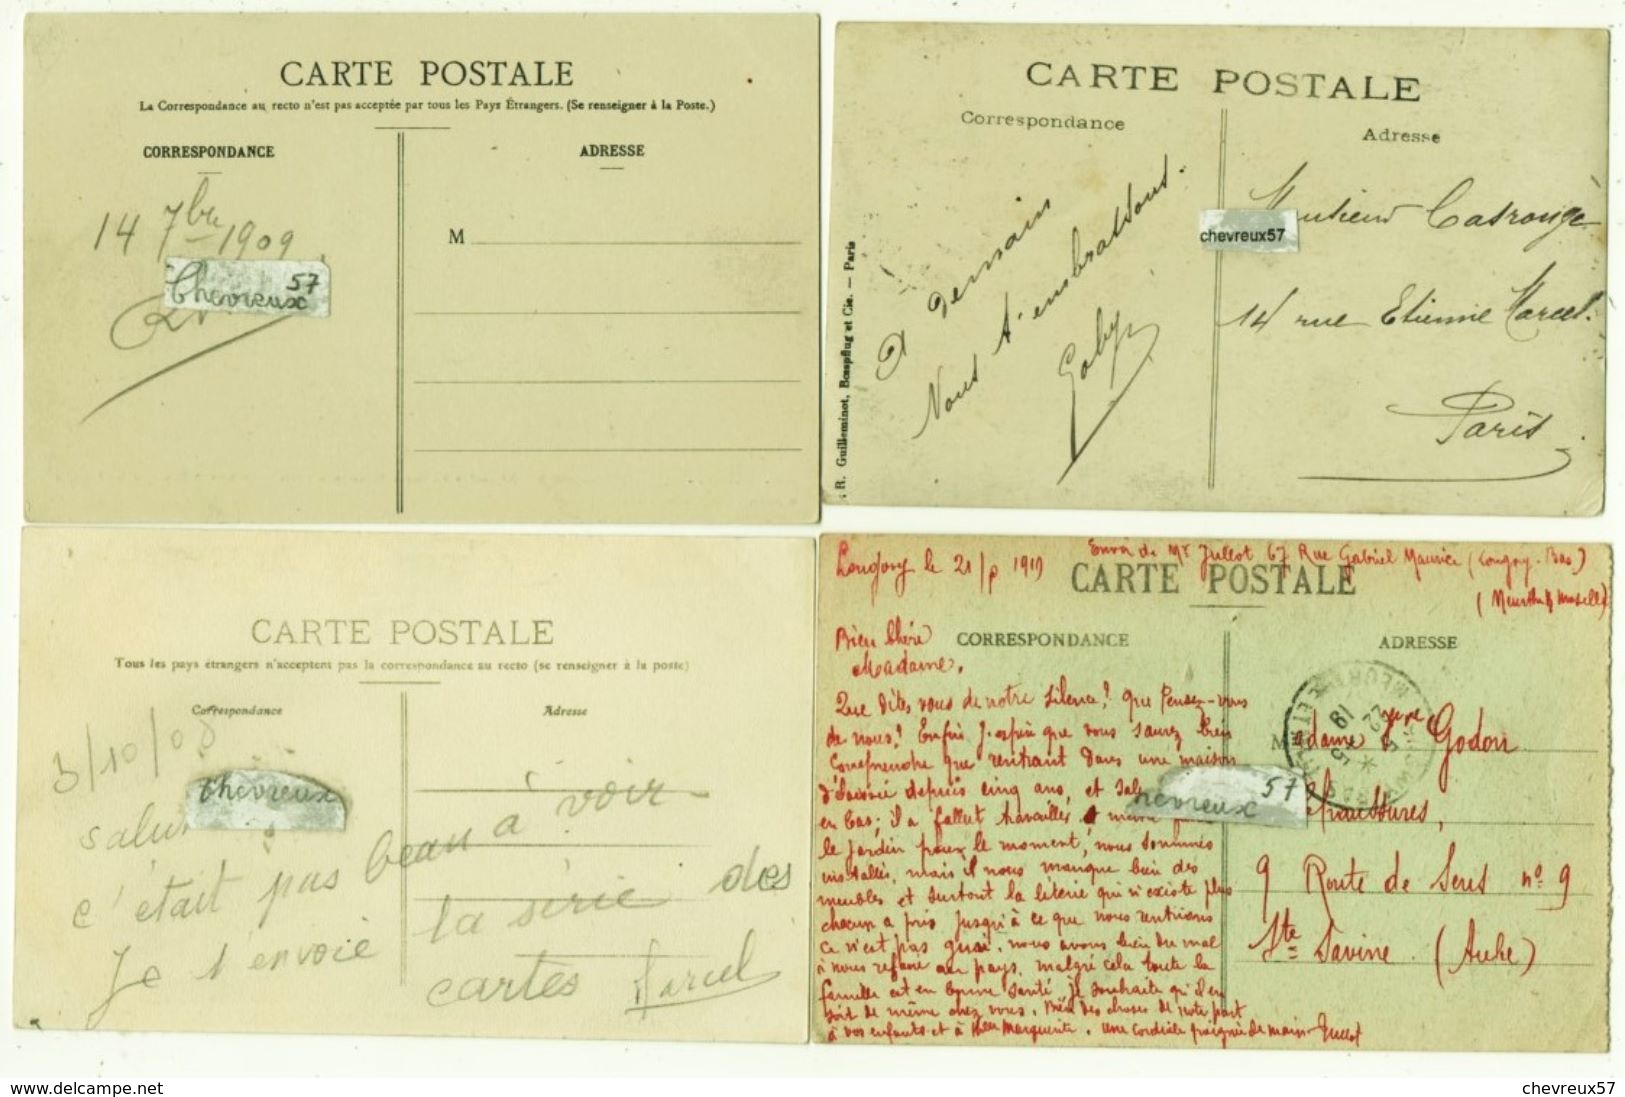 CARTE POSTALE
La Correspondance au recto n'est pas acceptée par tous les Pays Étrangers. (Se renseigner à la Poste.)
CORRESPONDANCE
ADRESSE
14 7bre 1909
Chevreux 57
M
CARTE POSTALE
Correspondance
Adresse
A demain
Nous t'embrassons.
Gaby
Monsieur Casrouge
chevreux57
14 rue Etienne Marcel.
Paris
R. Guilleminot, Bœspflug et Cie. — Paris
CARTE POSTALE
Tous les pays étrangers n'acceptent pas la correspondance au recto (se renseigner à la poste)
Correspondance
Adresse
3/10/08
Chevreux
salut
c'était pas beau à voir
Je t'envoie la série des
cartes Marcel
Longwy le 21/ 1919
Envoi de Mr Jullot 67 Rue Gabriel Maurice (Longwy-Bas)
(Meurthe & Moselle)
CARTE POSTALE
CORRESPONDANCE
ADRESSE
Bien Chère
Madame,
Que dites vous de notre silence? que Pensez-vous
de nous? Enfin J'espère que vous saurez bien
Comprendre que rentrant dans une maison
depuis cinq ans, et
en bas; il a fallut travailler
le jardin pour le moment, nous sommes
installés, mais il nous manque bien des
meubles et surtout la literie qui n'existe plus
chacun a pris jusqu'à ce que nous rentrions
ce n'est pas gai. nous avons bien du mal
à nous refaire au pays, malgré cela toute la
famille est en bonne santé je souhaite qu'il en
soit de même chez vous. Bien des choses de notre part
à vos enfants et à Melle Marguerite. Une cordiale poignée de main Jullot
Madame Veuve Godon
Chevreux 57
9 Route de Sens no 9
Ste Savine (Aube)
www.delcampe.net
chevreux57